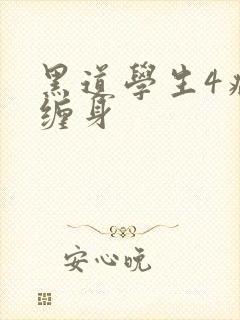 黑道學生4
缠身
安心晚